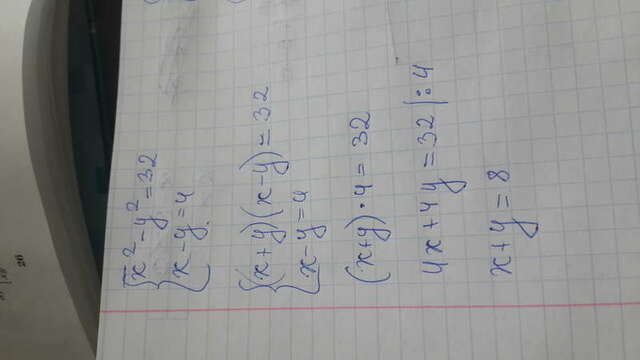 26
{x² - y² = 32
{x - y = 4
{(x + y)(x - y) = 32
{x - y = 4
(x+y) · 4 = 32
4x + 4y = 32 | : 4
x + y = 8